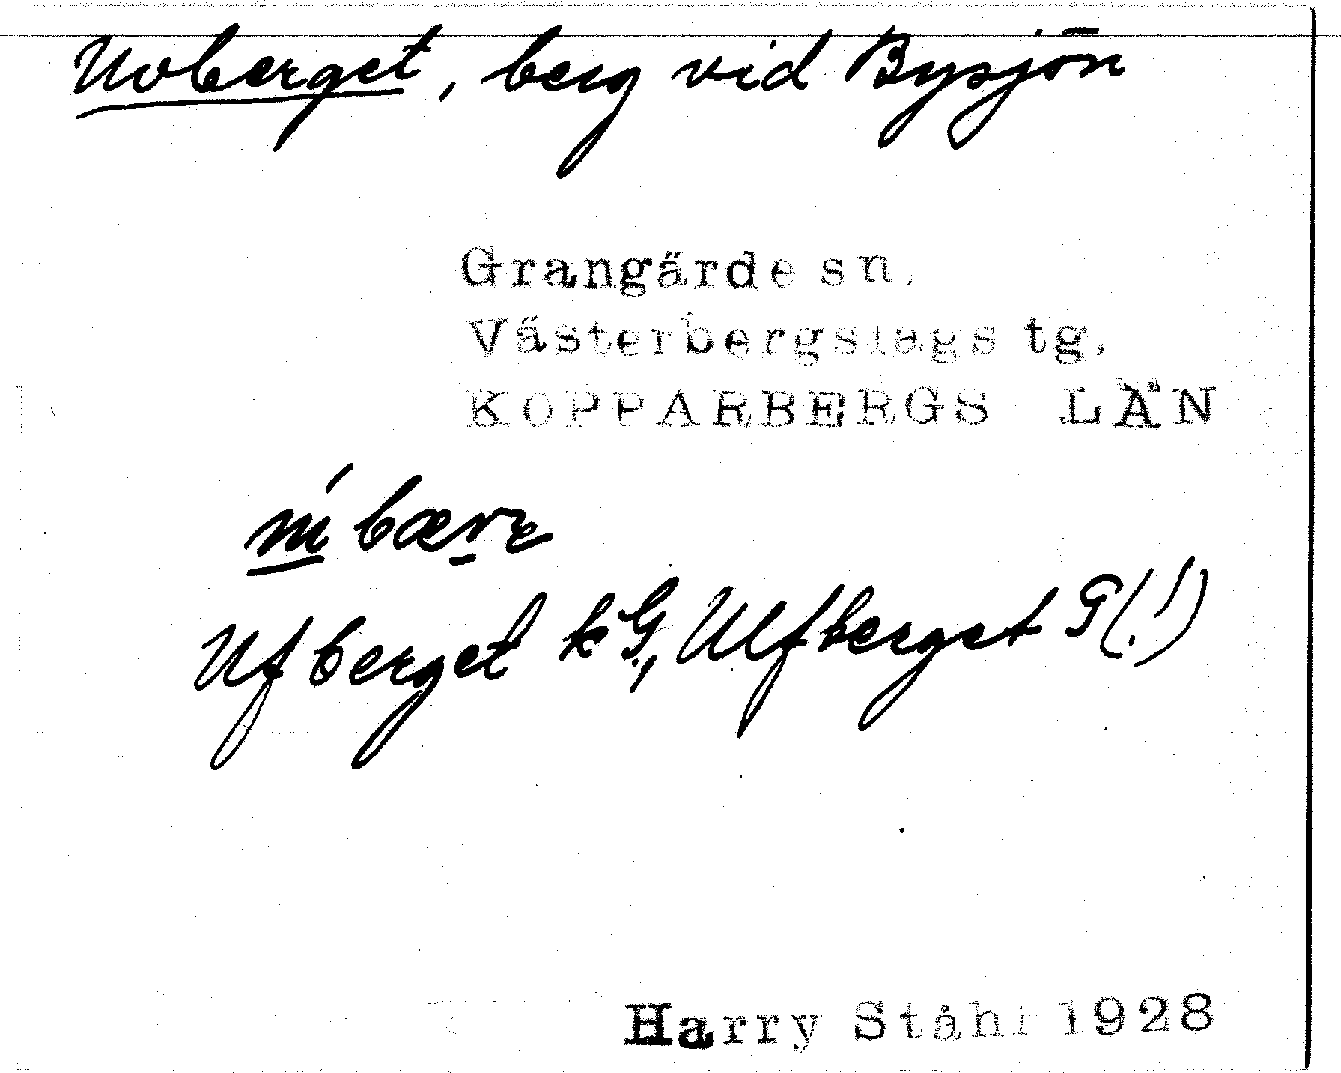 Uvberget, berg vid Bysjön
Grangärde sn.
Västerbergslags tg.
KOPPARBERGS LÄN
Ufberget kG, Ulfberget G(!)
Harry Ståhl 1928